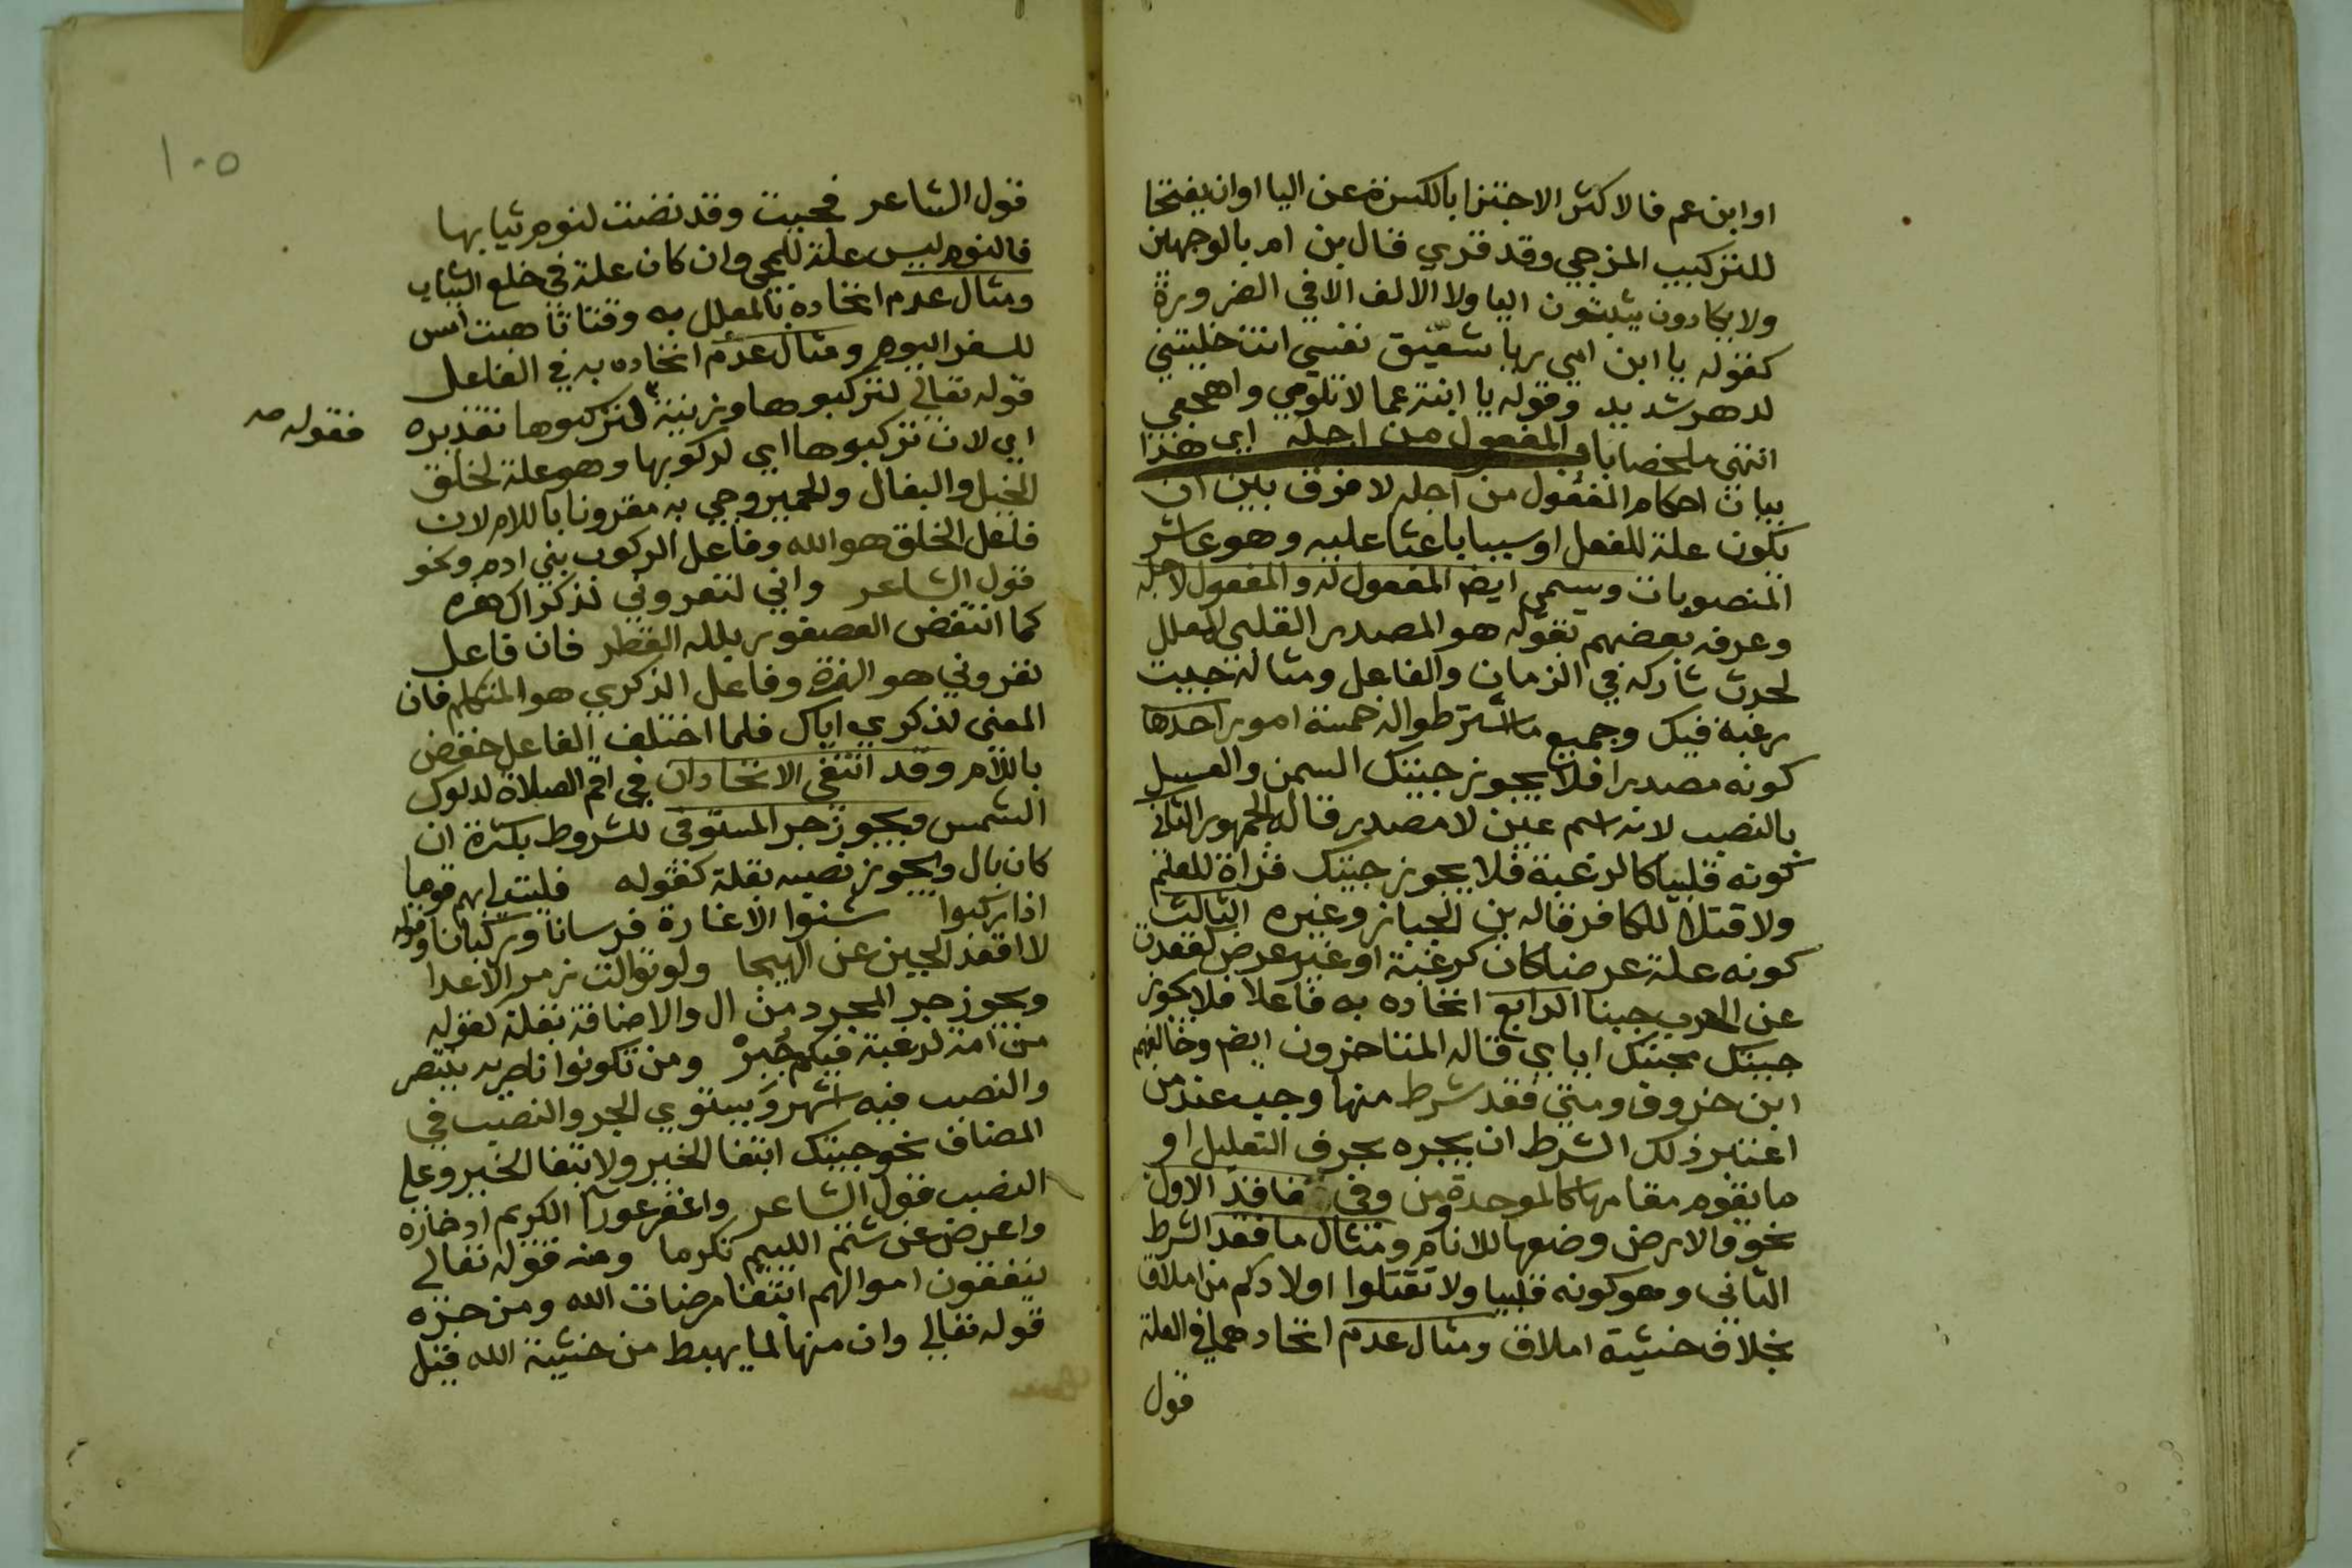 او ابن عم فالاكثر الاجتزا بالكسرة عن اليا او ان يفتحا
للتركيب المزجي وقد قري قال بن ام بالوجهين
ولا يكادون يثبتون اليا ولا الالف الا في الضرورة
كقوله يا ابن امي ويا شقيق نفسي انت خليتني
لدهر شديد وقوله يا ابنة عما لا تلومي واهجعي
انتهى ملخصا باب المفعول من اجله اي هذا
بيان احكام المفعول من اجله لا فرق بين ان
يكون علة للفعل او سببا باعثا عليه وهو عاشر
المنصوبات ويسمى ايضا المفعول له والمفعول لاجله
وعرفه بعضهم بقوله هو المصدر القلبي المعلل
لحدث شاركه في الزمان والفاعل ومثاله جيت
رغبة فيك وجميع ما اشترطوا له خمسة امور احدها
كونه مصدرا فلا يجوز جيتك السمن والعسل
بالنصب لانه اسم عين لا مصدر قاله الجمهور الثاني
كونه قلبيا كالرغبة فلا يجوز جيتك قراة للعلم
ولا قتلا للكافر قاله بن الخباز وغيره الثالث
كونه علة عرضا كان كرغبة او غير عرض كقعدت
عن الحرب جبنا الرابع اتحاده به فاعلا فلا يجوز
جيتك محبتك اياي قاله المتاخرون ايضا وخالفهم
ابن خروف ومتى فقد شرط منها وجب عند من
اعتبر ذلك الشرط ان يجره بحرف التعليل او
ما يقوم مقامها كالموحدة ومن وفي ففاقد الاول
نحو والارض وضعها للانام ومثال ما فقد الشرط
الثاني وهو كونه قلبيا ولا تقتلوا اولادكم من املاق
بخلاف خشية املاق ومثال عدم اتحادهما في العلة
قول
١٠٥
قول الشاعر فجيت وقد نضت لنوم ثيابها
فالنوم ليس علة للمجي وان كان علة في خلع الثياب
ومثال عدم اتحاده بالمعلل به وقتا تاهبت امس
للسفر اليوم ومثال عدم اتحاده به في الفاعل
قوله تعالى لتركبوها وزينة لتركبوها تقديره
فقوله صح
اي لان تركبوها اي لركوبها وهو علة لخلق
الخيل والبغال والحمير وجي به مقرونا باللام لان
فاعل الخلق هو الله وفاعل الركوب بني ادم ونحو
قول الشاعر واني لتعروني لذكراك هزة
كما انتفض العصفور بلله القطر فان فاعل
تعروني هو الهزة وفاعل الذكري هو المتكلم فان
المعنى لذكري اياك فلما اختلف الفاعل خفض
باللام وقد انتفى الاتحادان في اقم الصلاة لدلوك
الشمس ويجوز جر المستوفى للشروط بكثرة ان
كان بال ويجوز نصبه بقلة كقوله فليت لي بهم قوما
اذا ركبوا شنوا الاغارة فرسانا وركبانا وقوله
لا اقعد الجبن عن الهيجا ولو توالت زمر الاعدا
ويجوز جر المجرد من ال والاضافة بقلة كقوله
من امة لرغبة فيكم جبر ومن تكونوا ناصريه ينتصر
والنصب فيه اشهر ويستوي الجر والنصب في
المضاف نحو جيتك ابتغا الخير ولابتغا الخير وعلى
النصب قول الشاعر واغفر عورا الكريم ادخاره
واعرض عن شتم اللييم تكرما ومنه قوله تعالى
ينفقون اموالهم ابتغا مرضات الله ومن جره
قوله تعالى وان منها لما يهبط من خشية الله قيل